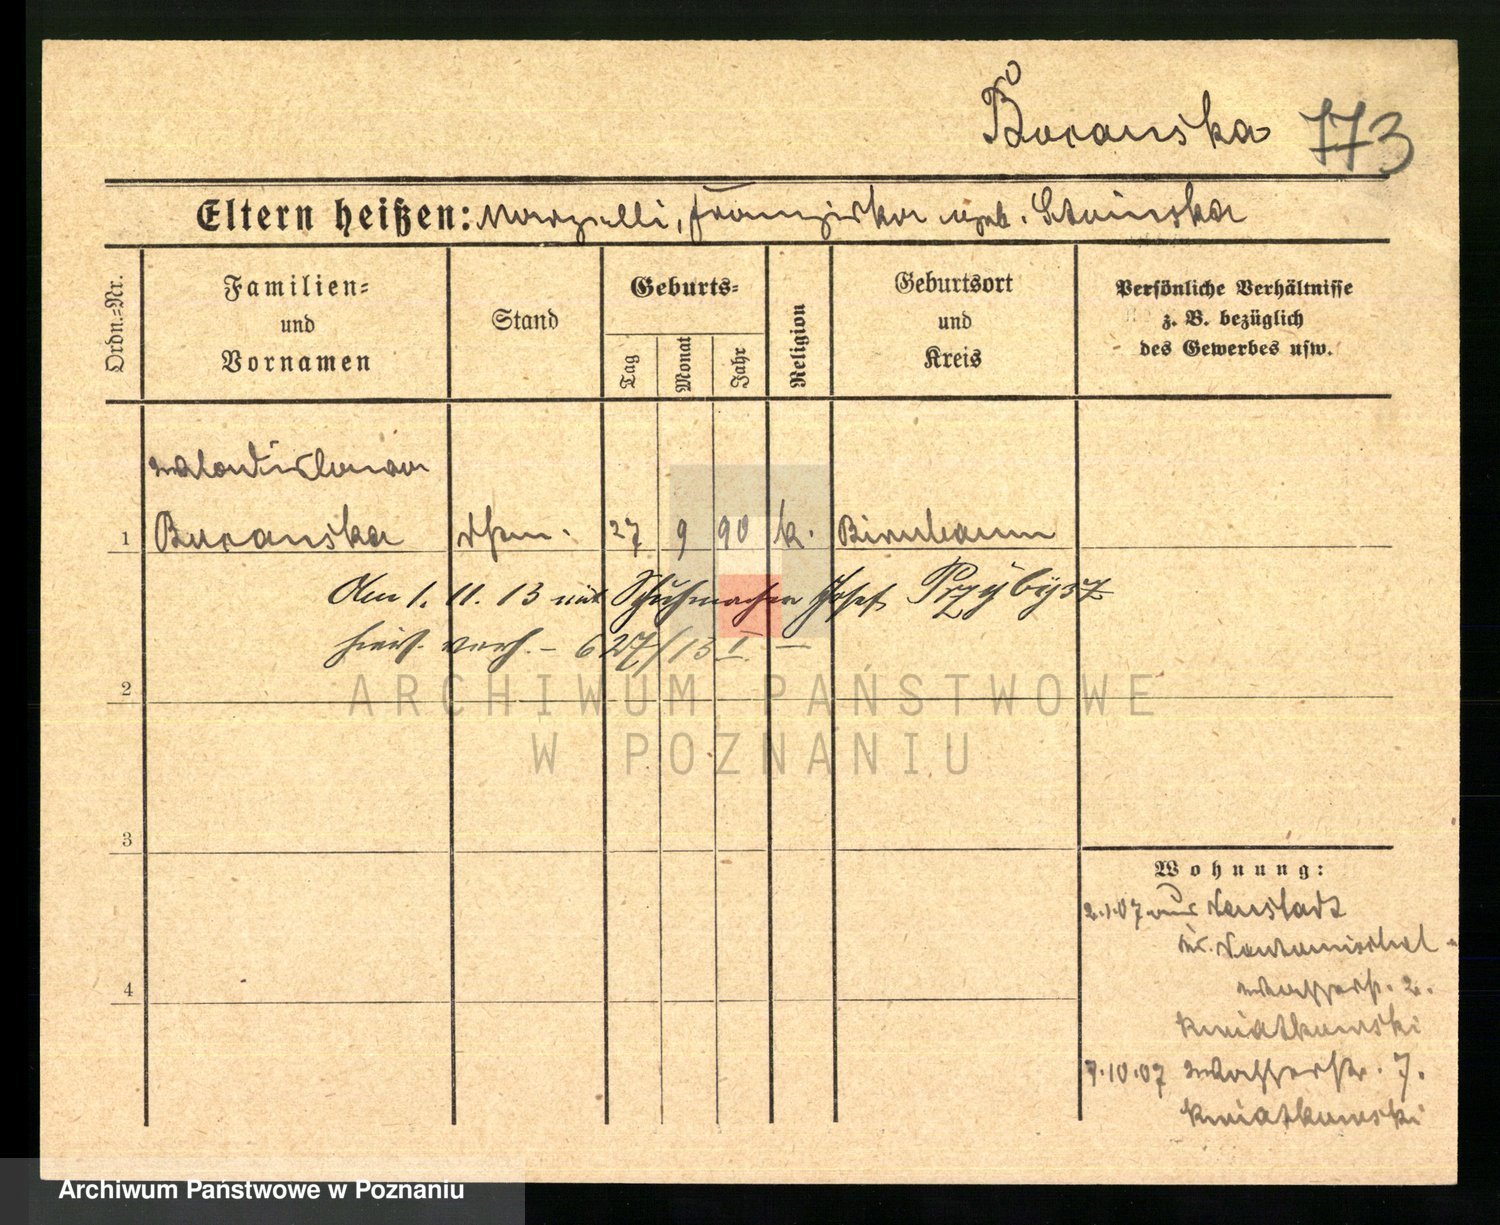 Buranska 773
Eltern heißen: Marzelli, Franziska geb. Stainska
Ordn.-Nr.
Familien-
und
Vornamen
Stand
Geburts-
Tag
Monat
Jahr
Religion
Geburtsort
und
Kreis
Persönliche Verhältnisse
z. B. bezüglich
des Gewerbes usw.
Wladislawa
1 Buranska 27 9 90 k. Birnbaum
Am 1. 11. 13 mit Schuhmacher Josef Przybysz
hier verh. – 627/13 I –
2
ARCHIWUM PAŃSTWOWE
W POZNANIU
3
4
Wohnung:
2.1.07 aus Neustadt
Kr. Neutomischel
Wasserstr. 2.
Kwiatkowski
7.10.07 Wasserstr. 7.
Kwiatkowski
Archiwum Państwowe w Poznaniu